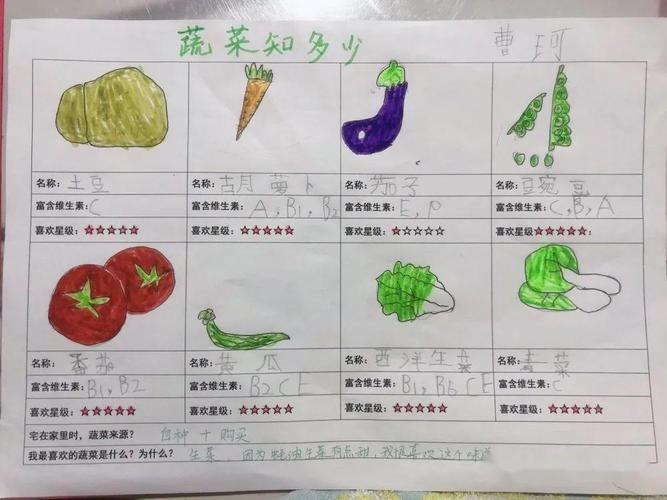 蔬菜知多少 曹珂
名称:土豆 名称:胡萝卜 名称:茄子 名称:豌豆
富含维生素:C 富含维生素:A,B1,B2 富含维生素:E,P 富含维生素:C,B,A
喜欢星级:★★★★★ 喜欢星级:★★★★★ 喜欢星级:★☆☆☆☆ 喜欢星级:★★★★★
名称:番茄 名称:黄瓜 名称:西洋生菜 名称:青菜
富含维生素:B1,B2 富含维生素:B2 C E 富含维生素:B1,B6 C E 富含维生素:C
喜欢星级:★★★★★ 喜欢星级:★★★★★ 喜欢星级:★★★★★ 喜欢星级:★★★★★
宅在家里时,蔬菜来源? 自种+购买
我最喜欢的蔬菜是什么?为什么? 生菜,因为蚝油生菜有点甜,我很喜欢这个味道